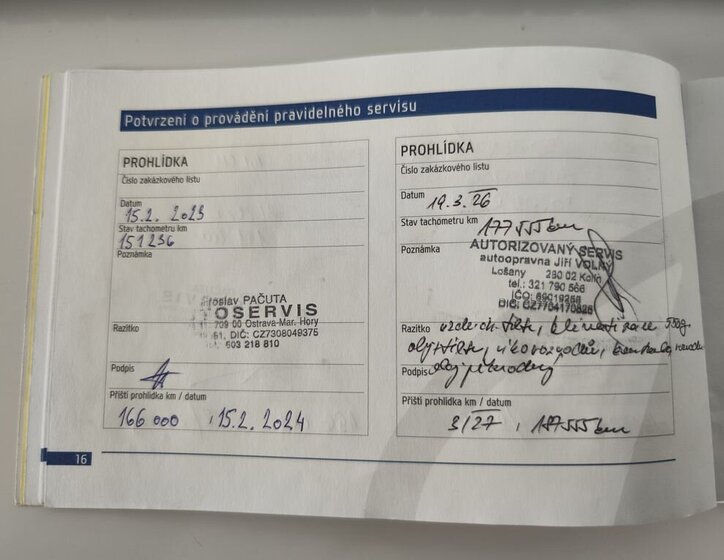 Potvrzení o provádění pravidelného servisu
PROHLÍDKA
Číslo zakázkového listu
Datum
15.2. 2023
Stav tachometru km
151236
Poznámka
roslav PAČUTA
TOSERVIS
709 00 Ostrava-Mar. Hory
DIČ: CZ7308049375
603 218 810
Razítko
Podpis
Příští prohlídka km / datum
166 000 , 15.2. 2024
PROHLÍDKA
Číslo zakázkového listu
Datum
19.3.26
Stav tachometru km
177555 km
Poznámka
AUTORIZOVANÝ SERVIS
autoopravna Jiří VOLNÝ
Lošany 280 02 Kolín
tel.: 321 790 566
IČO: 69019258
DIČ: CZ7704170826
Razítko
550g
olej
Podpis
olej
Příští prohlídka km / datum
3/27 , 187555 km
16